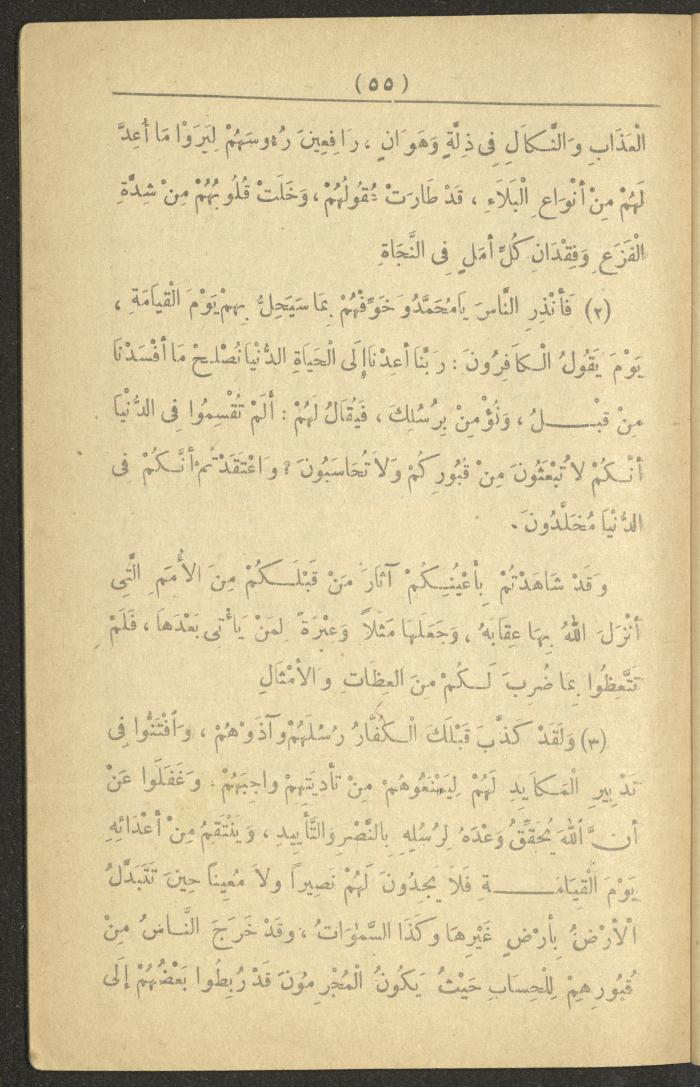 (٥٥)
الْعَذَابِ وَالنَّكَالِ فِى ذِلَّةٍ وَهَوَانٍ ، رَافِعِينَ رُءُوسَهُمْ لِيَرَوْا مَا أُعِدَّ
لَهُمْ مِنْ أَنْوَاعِ الْبَلَاءِ ، قَدْ طَارَتْ عُقُولُهُمْ ، وَخَلَتْ قُلُوبُهُمْ مِنْ شِدَّةِ
الْفَزَعِ وَفِقْدَانِ كُلِّ أَمَلٍ فِى النَّجَاةِ
(٢) فَأَنْذِرِ النَّاسَ يَا مُحَمَّدُ وَخَوِّفْهُمْ بِمَا سَيَحِلُّ بِهِمْ يَوْمَ الْقِيَامَةِ ،
يَوْمَ يَقُولُ الْكَافِرُونَ : رَبَّنَا أَعِدْنَا إِلَى الْحَيَاةِ الدُّنْيَا نُصْلِحْ مَا أَفْسَدْنَا
مِنْ قَبْلُ ، وَنُؤْمِنْ بِرُسُلِكَ ، فَيُقَالُ لَهُمْ : أَلَمْ تُقْسِمُوا فِى الدُّنْيَا
أَنَّكُمْ لَا تُبْعَثُونَ مِنْ قُبُورِكُمْ وَلَا تُحَاسَبُونَ ؟ وَاعْتَقَدْتُمْ أَنَّكُمْ فِى
الدُّنْيَا مُخَلَّدُونَ .
وَقَدْ شَاهَدْتُمْ بِأَعْيُنِكُمْ آثَارَ مَنْ قَبْلَكُمْ مِنَ الْأُمَمِ الَّتِى
أَنْزَلَ اللهُ بِهَا عِقَابَهُ ، وَجَعَلَهَا مَثَلاً وَعِبْرَةً لِمَنْ يَأْتِى بَعْدَهَا ، فَلَمْ
تَتَّعِظُوا بِمَا ضُرِبَ لَكُمْ مِنَ العِظَاتِ وَالأَمْثَالِ
(٣) وَلَقَدْ كَذَّبَ قَبْلَكَ الْكُفَّارُ رُسُلَهُمْ وَآذَوْهُمْ ، وَافْتَنُّوا فِى
تَدْبِيرِ الْمَكَايِدِ لَهُمْ لِيَمْنَعُوهُمْ مِنْ تَأْدِيَتِهِمْ وَاجِبَهُمْ . وَغَفَلُوا عَنْ
أَنَّ اللهَ يُحَقِّقُ وَعْدَهُ لِرُسُلِهِ بِالنَّصْرِ وَالتَّأْيِيدِ ، وَيَنْتَقِمُ مِنْ أَعْدَائِهِ
يَوْمَ الْقِيَامَةِ فَلَا يَجِدُونَ لَهُمْ نَصِيراً وَلَا مُعِيناً حِينَ تَتَبَدَّلُ
الْأَرْضُ بِأَرْضٍ غَيْرِهَا وَكَذَا السَّمٰوَاتُ ، وَقَدْ خَرَجَ النَّاسُ مِنْ
قُبُورِهِمْ لِلْحِسَابِ حَيْثُ يَكُونُ الْمُجْرِمُونَ قَدْ رُبِطُوا بَعْضُهُمْ إِلَى